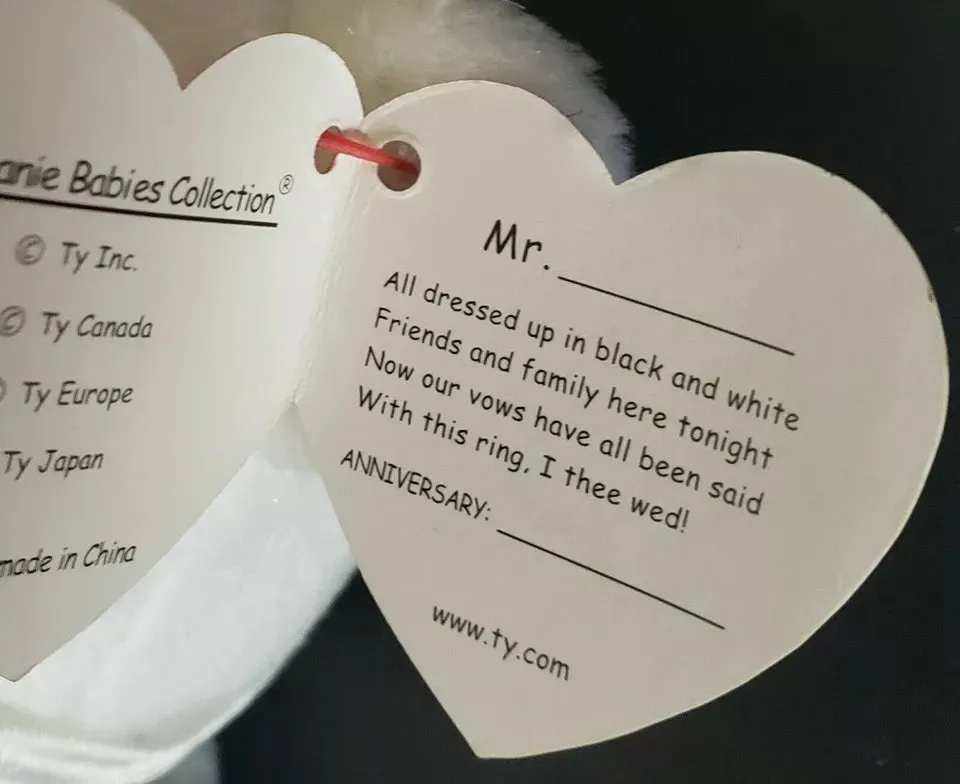 anie Babies Collection®
© Ty Inc.
© Ty Canada
Ty Europe
Ty Japan
made in China
Mr. ____________
All dressed up in black and white
Friends and family here tonight
Now our vows have all been said
With this ring, I thee wed!
ANNIVERSARY: ____________
www.ty.com